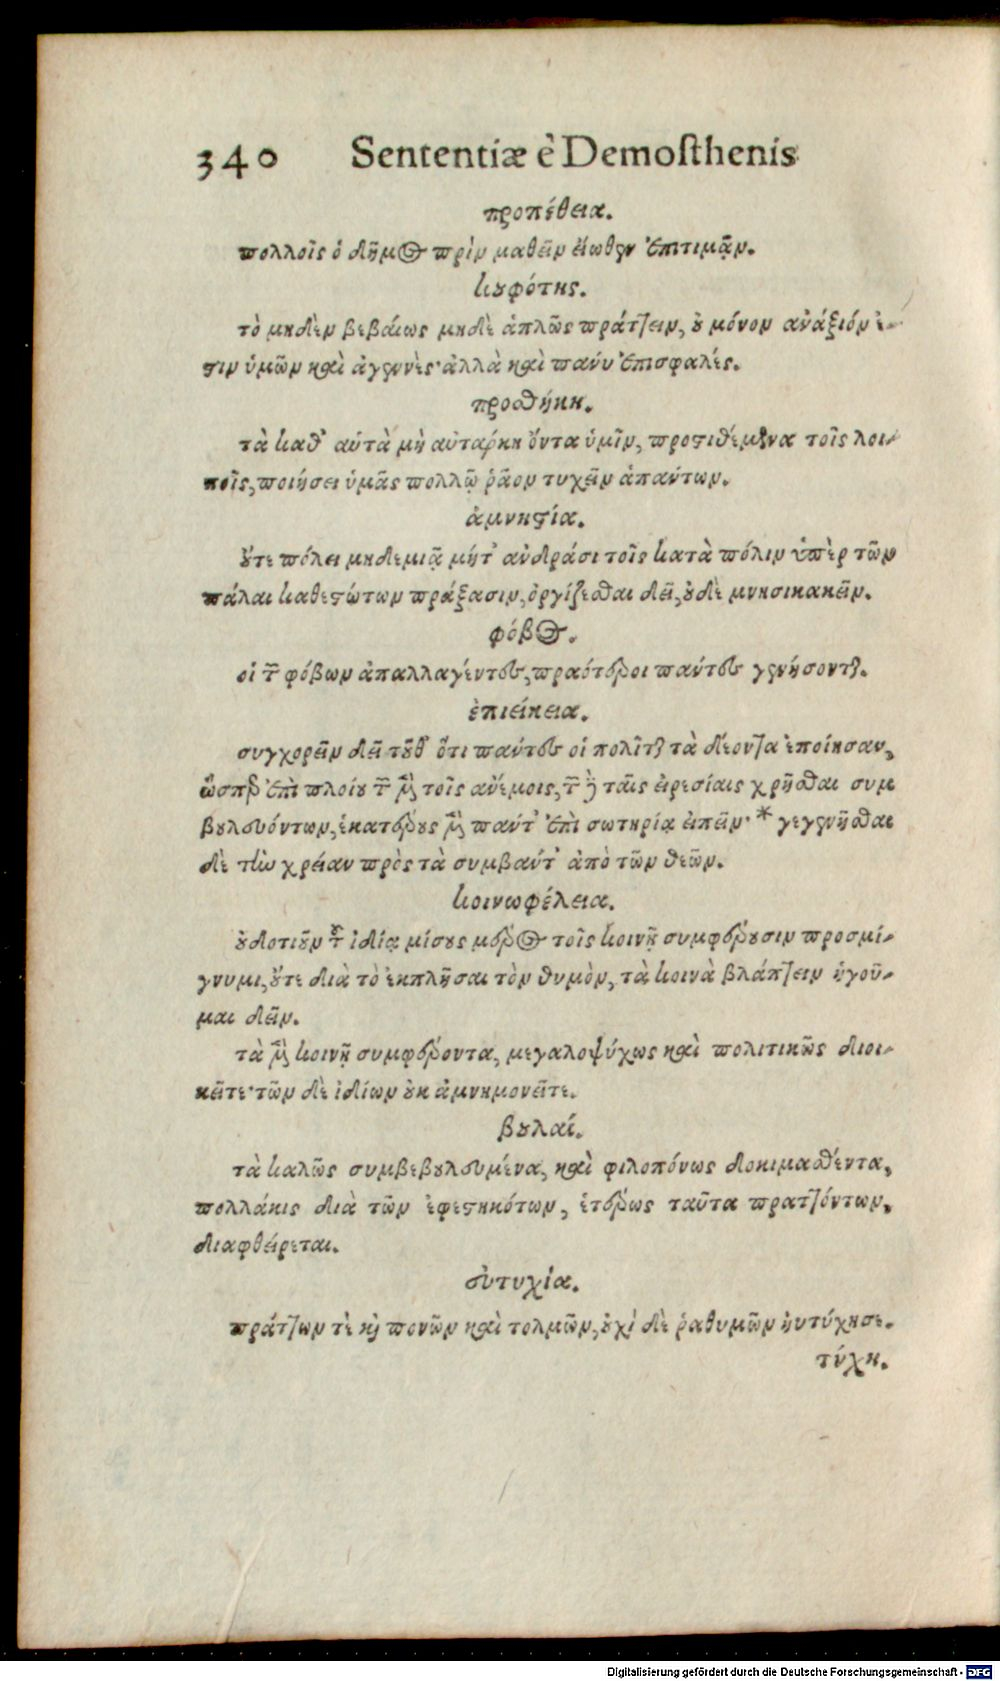 340 Sententiæ è Demosthenis
προπέθεια.
πολλοῖς ὁ δῆμος πρὶν μαθεῖν εἴωθεν ἐπιτιμᾷν.
κουφότης.
τὸ μηδὲν βεβαίως μηδὲ ἁπλῶς πράττειν, οὐ μόνον ἀνάξιόν ἐ-
στιν ὑμῶν καὶ ἀγεννὲς· ἀλλὰ καὶ πανύ ἐπισφαλές.
προσθήκη.
τὰ καθ' αὑτὰ μὴ αὐταρκη ὄντα ὑμῖν, προστιθέμενα τοῖς λοι-
ποῖς, ποιήσει ὑμᾶς πολλῷ ῥᾷον τυχεῖν ἁπαντων.
ἀμνηστία.
οὔτε πόλει μηδεμιᾷ μήτ' ανδράσι τοῖς κατὰ πόλιν ὑπὲρ τῶν
πάλαι καθεστώτων πράξασιν, ὀργίζεσθαι δεῖ, οὐδὲ μνησικακεῖν.
φόβος.
οἱ τῶν φόβων ἀπαλλαγέντες, πραότεροι παύτες γενήσονται.
ἐπιείκεια.
συγχορεῖν δεῖ τοῦθ' ὅτι παύτες οἱ πολῖται τὰ δέοντα ἐποίησαν,
ὥσπερ ἐπὶ πλοίου τῶν μὲν τοῖς ανέμοις, τῶν δὲ ταῖς εἰρεσίαις χρῆσθαι συμ
βουλευόντων, ἑκατέρους μὲν παύτ' ἐπὶ σωτηρίᾳ εἰπεῖν· * γεγενῆσθαι
δὲ τὴν χρείαν πρὸς τὰ συμβαύτ' ἀπὸ τῶν θεῶν.
κοινωφέλεια.
οὐδοτιοῦν τῆς ἰδίᾳ μίσους μέρος τοῖς κοινῇ συμφέρουσιν προσμί-
γνυμι, οὔτε διὰ τὸ ἐκπλῆσαι τὸν θυμὸν, τὰ κοινὰ βλάπτειν ἡγοῦ-
μαι δεῖν.
τὰ μὲν κοινῇ συμφέροντα, μεγαλοψύχως καὶ πολιτικῶς διοι-
κεῖτε· τῶν δὲ ἰδίων οὐκ ἀμνημονεῖτε.
βουλαί.
τὰ καλῶς συμβεβουλευμένα, καὶ φιλοπόνως δοκιμασθέντα,
πολλάκις διὰ τῶν ἐφεστηκότων, ἑτέρως ταῦτα πραττόντων,
διαφθείρεται.
εὐτυχία.
πράττων τὲ καὶ πονῶν καὶ τολμῶν, οὐχὶ δὲ ῥαθυμῶν ηὐτύχησε.
τύχη.
Digitalisierung gefördert durch die Deutsche Forschungsgemeinschaft - DFG